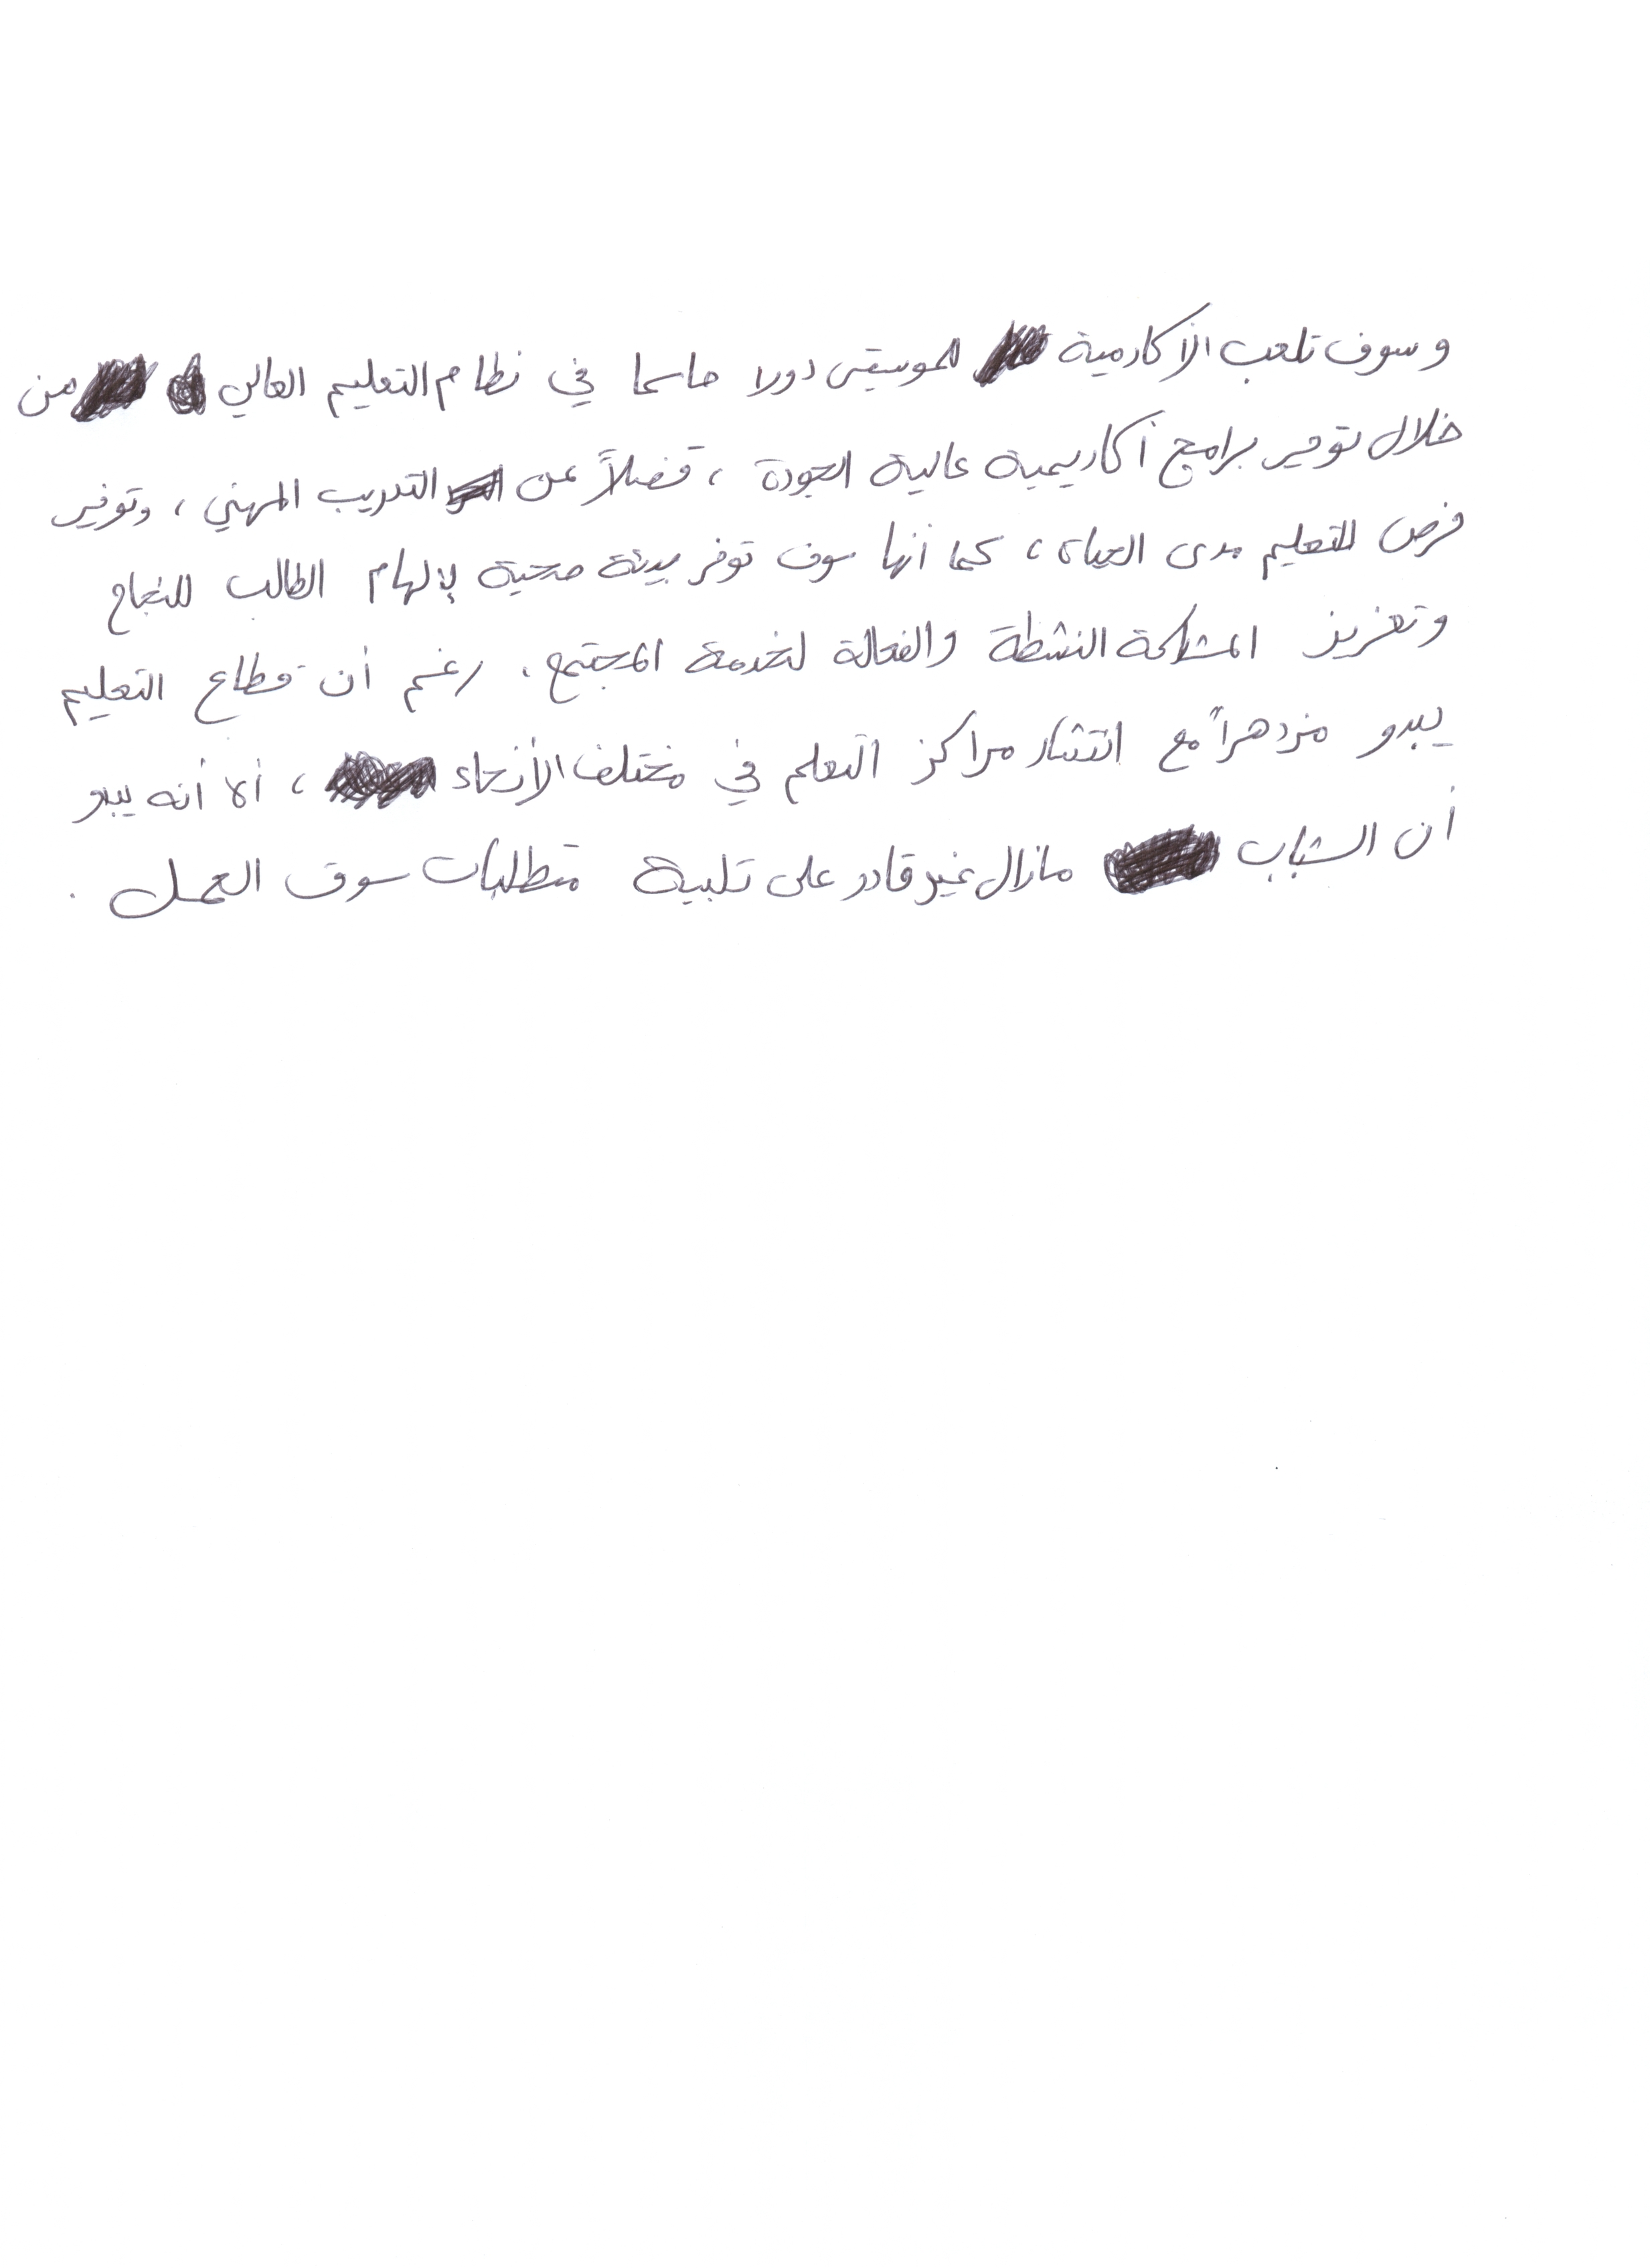 وسوف تلعب الأكادمية للموسيقى دورا حاسما في نظام التعليم العالي من
خلال توفير برامج أكاديمية عالية الجودة ، فضلاً عن التدريب المهني ، وتوفير
فرص للتعليم مدى الحياة ، كما أنها سوف توفر بيئة صحية لإلهام الطالب للنجاح
وتعزيز المشاركة النشطة والفعالة لخدمة المجتمع . رغم أن قطاع التعليم
يبدو مزدهراً مع انتشار مراكز التعلم في مختلف الأنحاء ، ألا أنه يبدو
أن الشباب مازال غير قادر على تلبية متطلبات سوق العمل .